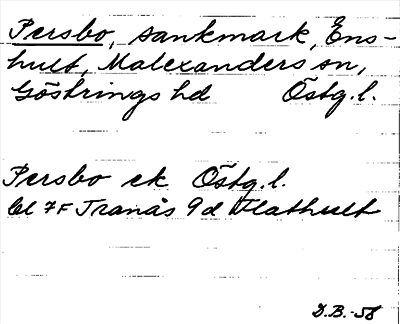 Persbo, sankmark, Ens-
hult, Malexanders sn,
Göstrings hd Östg.l.
Persbo ek Östg.l.
bl 7F Tranås 9d Flathult
D.B.-58